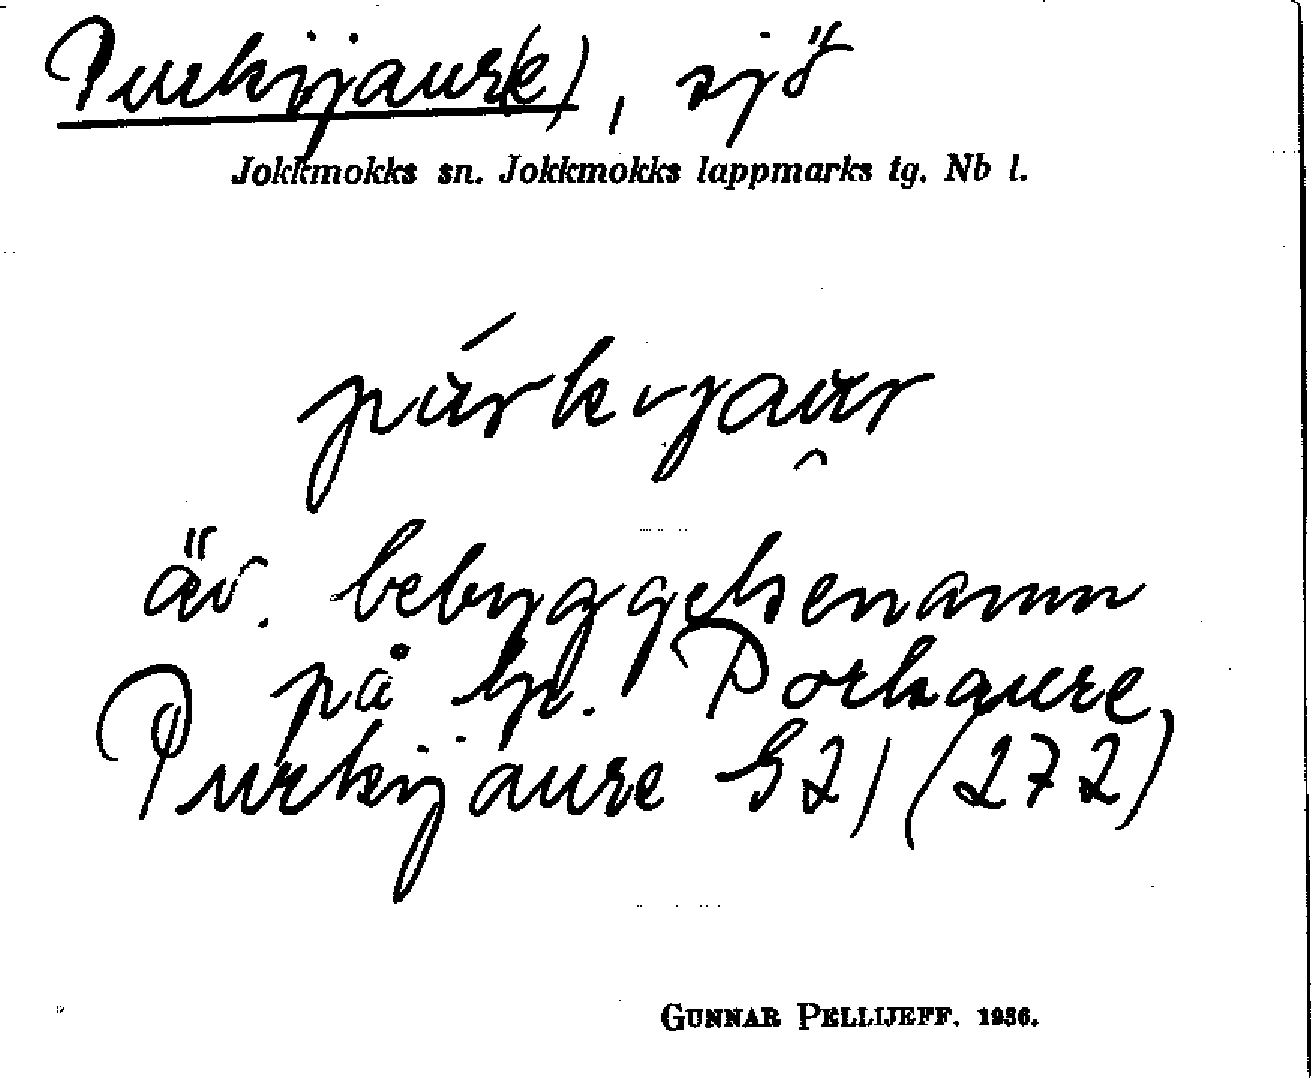 Purkijaur(e), sjö
Jokkmokks sn. Jokkmokks lappmarks tg. Nb l.
púrkijau̯r
äv. bebyggelsenamn
på kr. Porkaure,
Purkijaure S2/(272)
GUNNAR PELLIJEFF. 1956.